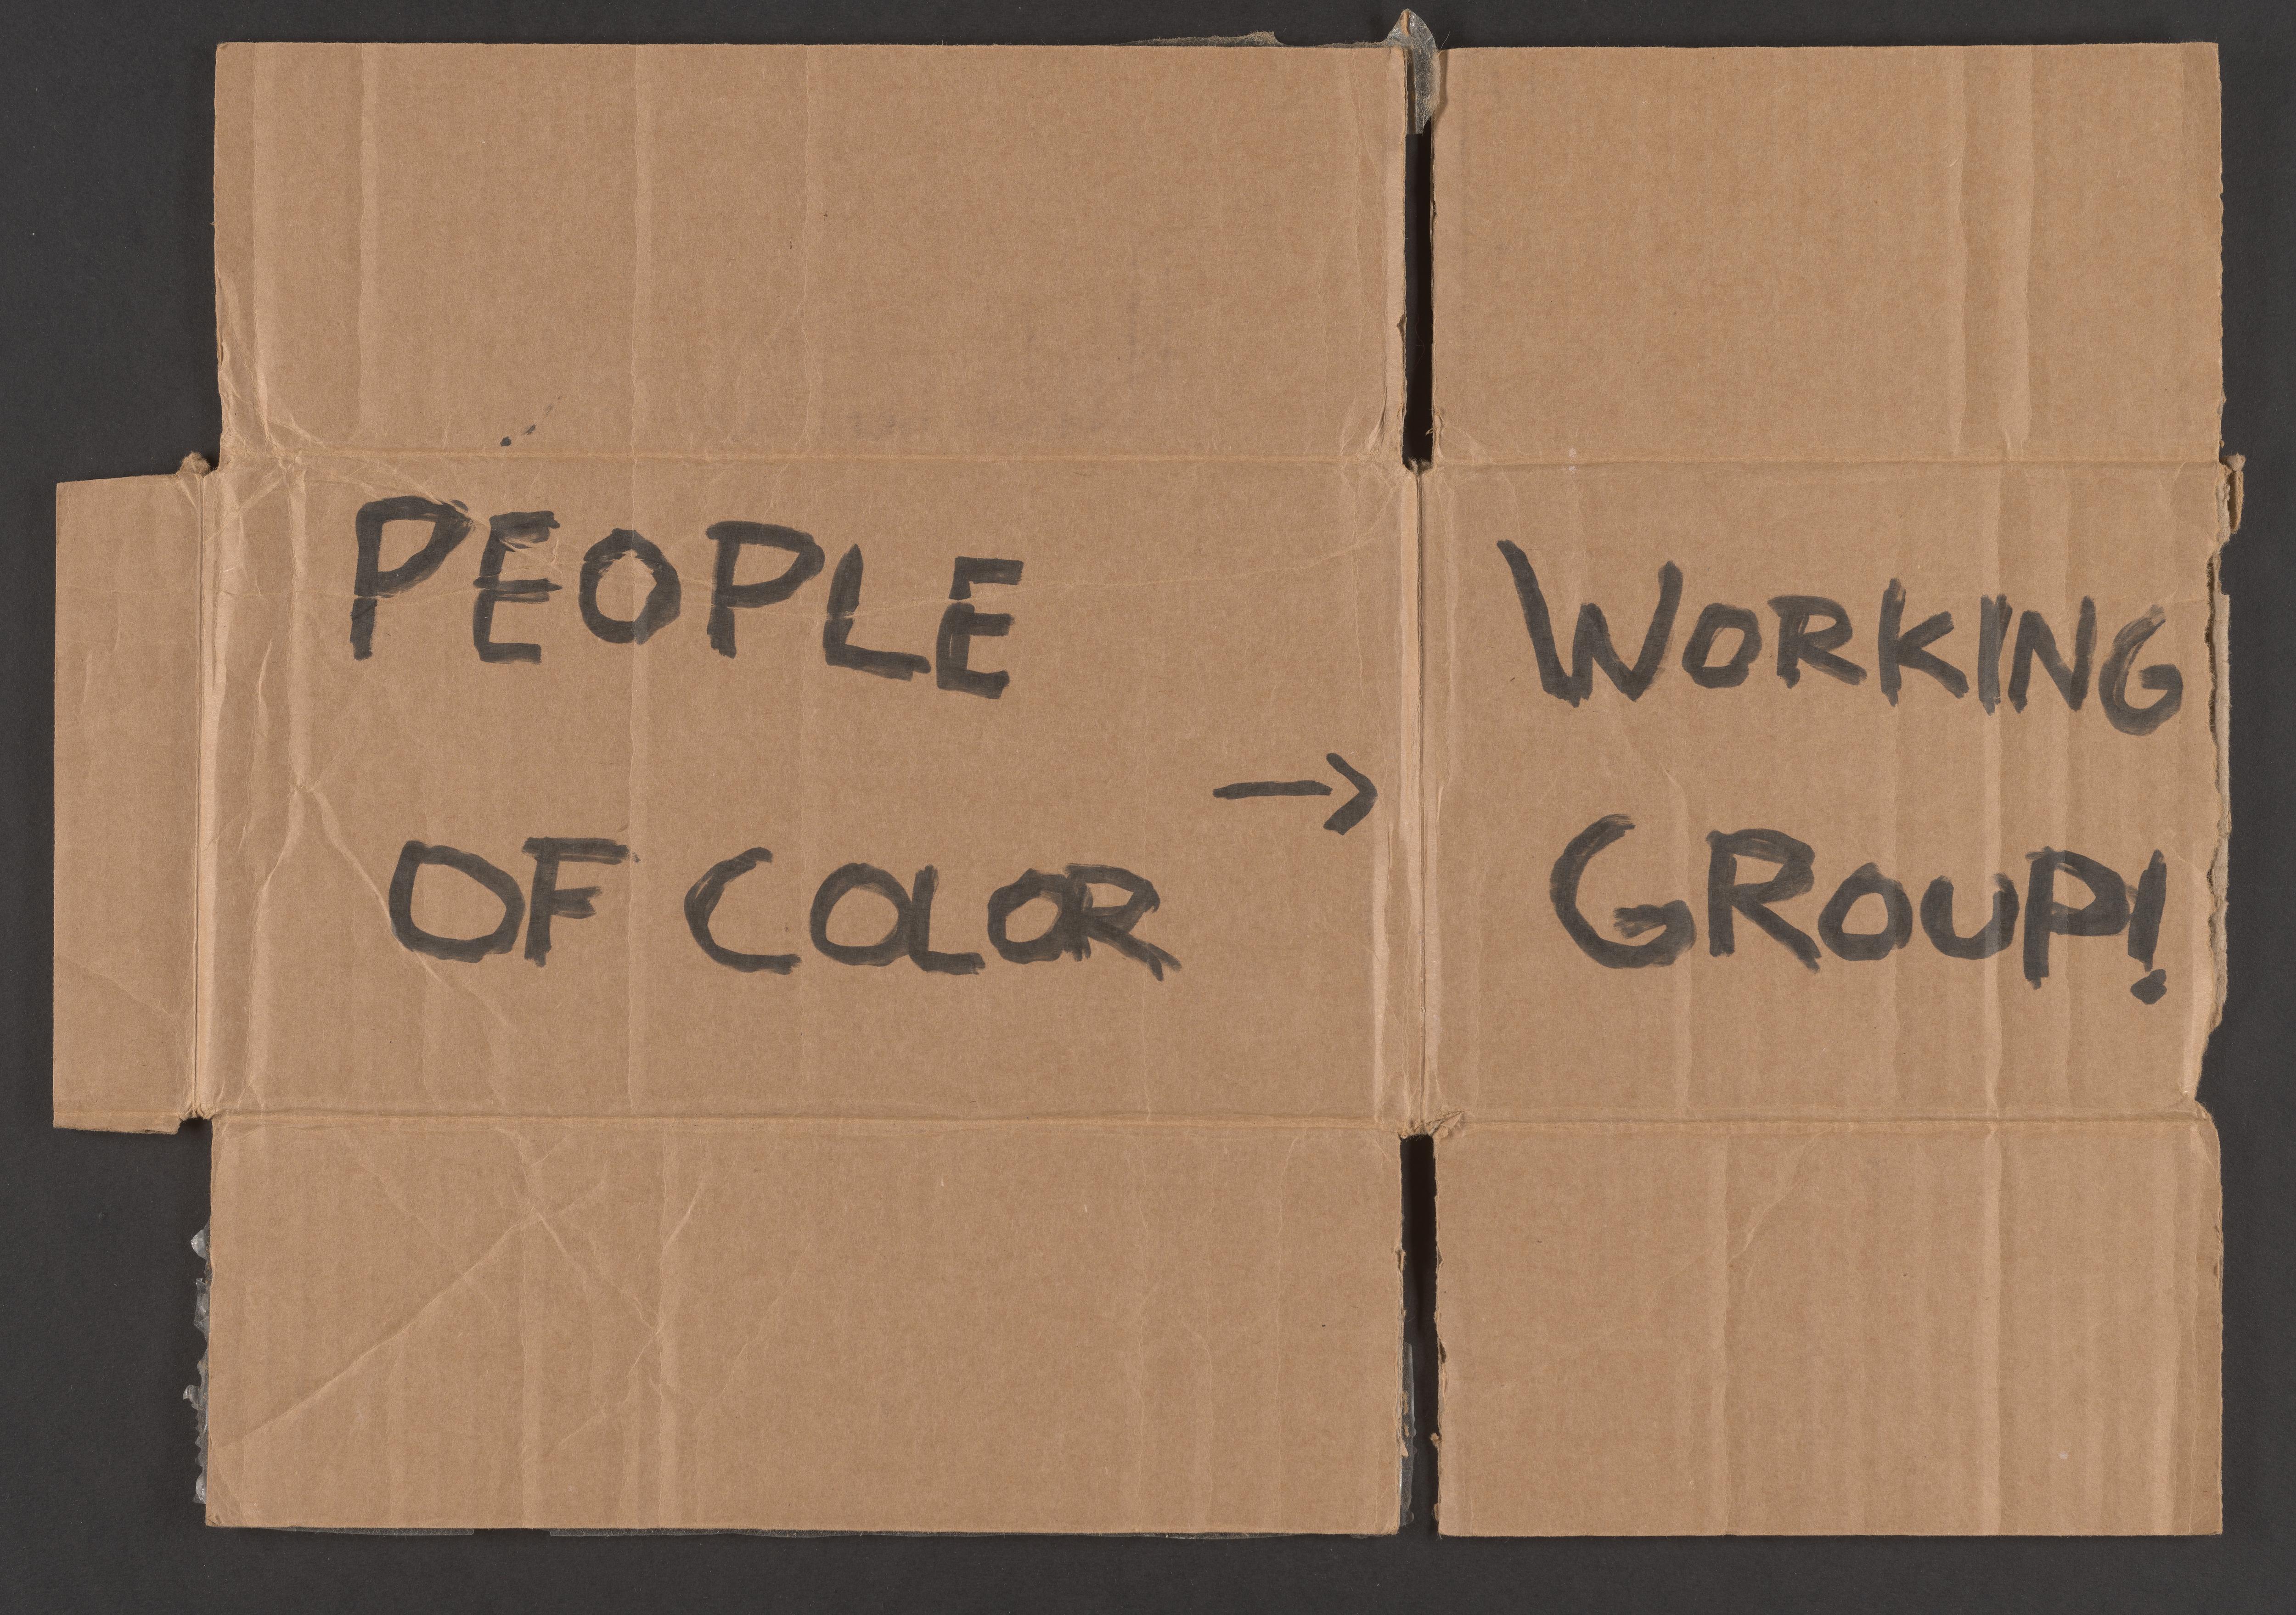 PEOPLE
OF COLOR →
WORKING
GROUP!